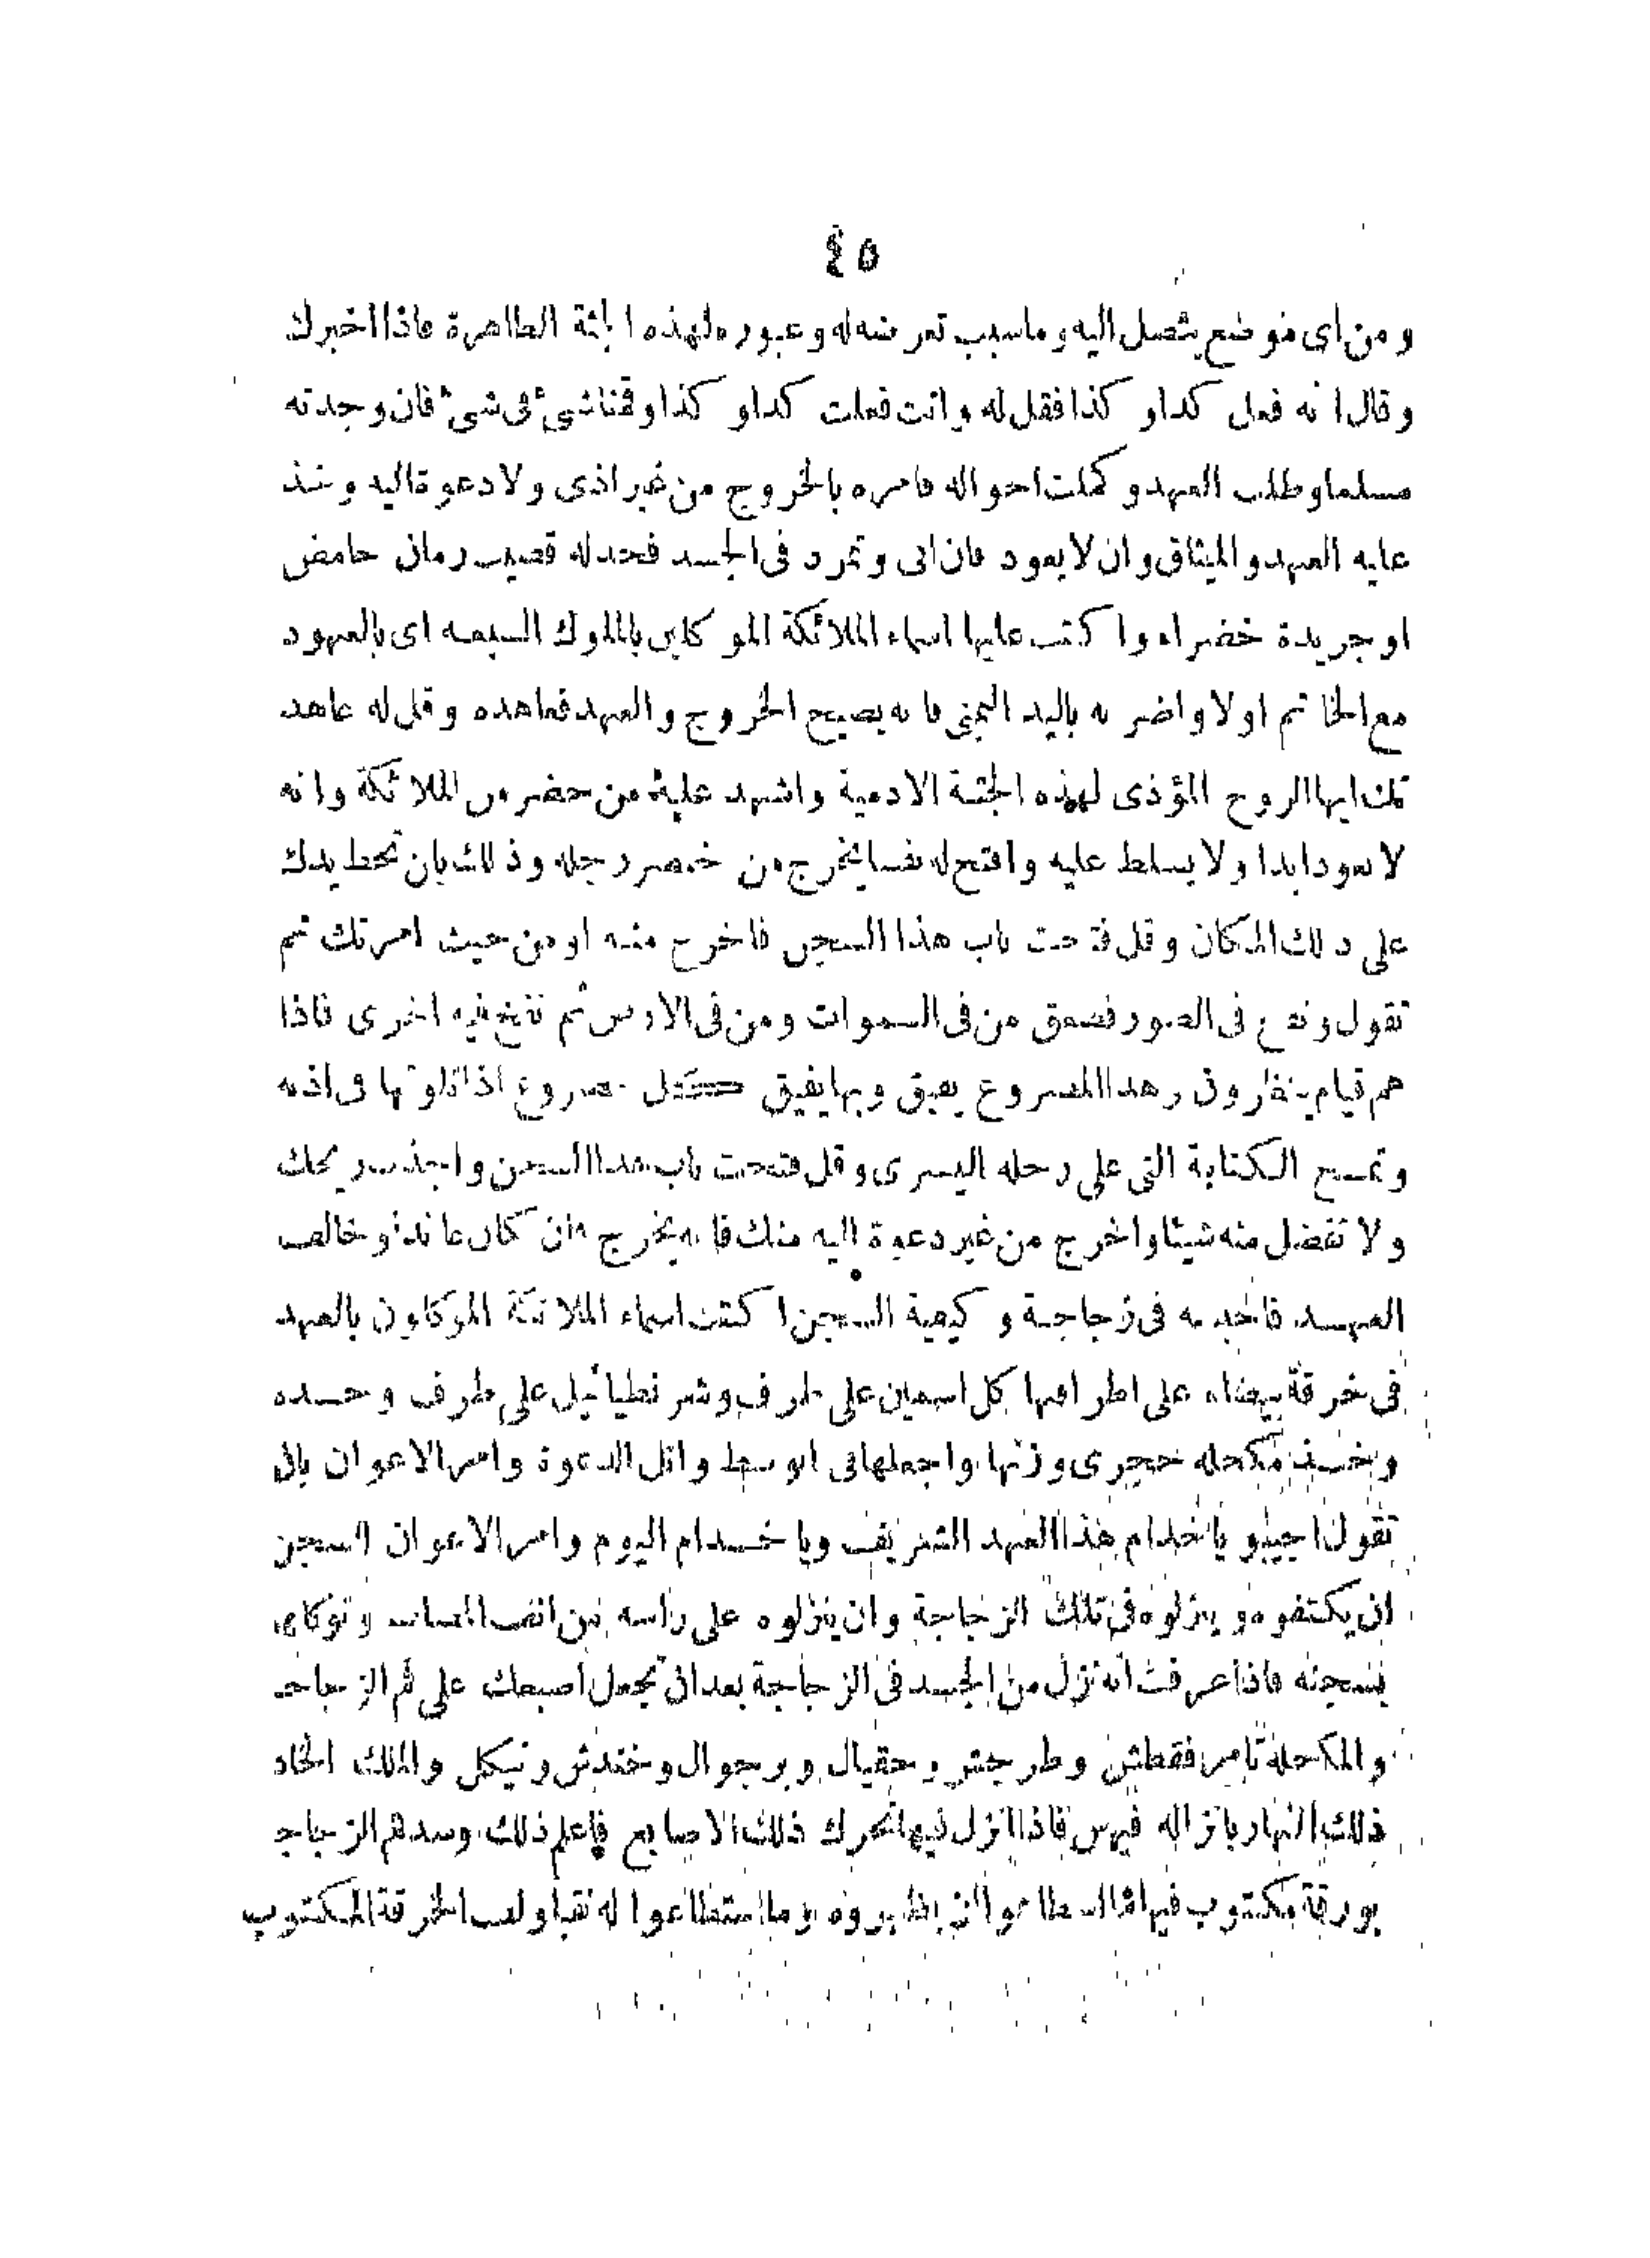 ٤٥
ومن اى موضع يتصل اليه وما سبب تعرضه له وعبوره لهذه الجثة الطاهرة فاذا اخبرك
وقال انه فعل كذا وكذا فقل له وانت فعلت كذا وكذا وقمنا شئ فى شئ فان وجدته
مسلما وطلب العهد وكملت احواله فامره بالخروج من غير اذى ولا دعوة اليه وخذ
عليه العهد والميثاق وان لا يعود فان ابى وتمرد فى الجسد فخذ له قضيب رمان حامض
او جريدة خضراء واكتب عليها اسماء الملائكة الموكلين بالملوك السبعه اى بالعهود
مع الخاتم اولا واضربه باليد اليمنى فانه يصيح الخروج والعهد فعاهده وقل له عاهد
تك ايها الروح المؤذى لهذه الجثة الادمية واشهد عليه من حضر من الملائكة وانه
لا يعود ابدا ولا يسلط عليه وافتح له نفسا يخرج من خنصر رجله وذلك بان تحط يدك
على ذلك المكان وقل فتحت باب هذا السجن فاخرج منه او من حيث امرتك ثم
تقول ونفخ فى الصور فصعق من فى السموات ومن فى الارض ثم نفخ فيه اخرى فاذا
هم قيام ينظرون وهذا المصروع يفيق وبها يفيق كل مصروع اذا تلوتها فى اذنه
وتمسح الكتابة التى على رجله اليسرى وقل فتحت باب هذا السجن واجذب ريحك
ولا تفضل منه شيئا واخرج من غير دعوة اليه منك فانه يخرج وان كان عاند وخالف
العهد فاحبسه فى زجاجة وكيفية السجن اكتب اسماء الملائكة الموكلون بالعهد
فى خرقة بيضاء على اطرافها كل اسمين على طرف وشرنطيائيل على طرف وحده
وخذ مكحله حجرى وزنها واجعلها فى الوسط واتل الدعوة وامر الاعوان بان
تقول اجيبو يا خدام هذا العهد الشريف ويا خدام اليوم وامر الاعوان السجن
ان يكتفوه وينزلوه فى تلك الزجاجة وان ينزلوه على راسه من انف المصاب وتوكلهم
بسجنه فاذا عرفت انه نزل من الجسد فى الزجاجة بعد ان تجعل اصبعك على فم الزجاجه
والمكحلة تامر فقطش وطرجش وحقيال وبرجوال وخندش ونيكل والملك الخاد
ذلك النهار بانزاله فيهن فاذا انزل فيها تحرك ذلك الاصابع فاعلم ذلك وسد فم الزجاج
بورقة مكتوب فيها فما اسطاعوا ان يظهروه وما استطاعوا له نقبا ولف الخرقة المكتوب